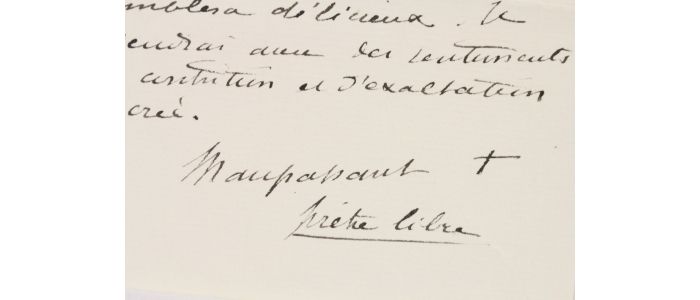 mblera délicieux. Je
iendrai avec des sentiments
contrition et d'exaltation
crée.
Maupassant +
prêtre libre